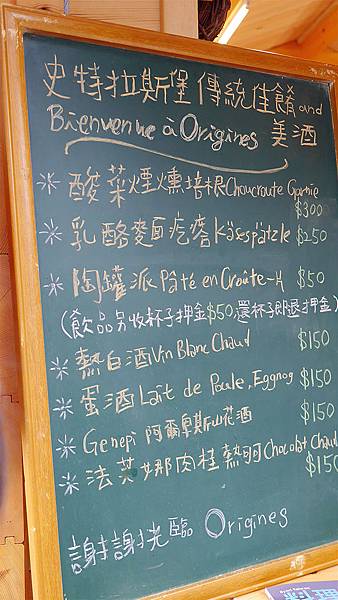 史特拉斯堡傳統佳餚and
Bienvenue à Origines 美酒
酸菜煙燻培根Choucroute Garnie
$300
乳酪麵疙瘩Käsespätzle $250
陶罐派Pâté en Croûte $50
(飲品另收杯子押金$50,還杯子即退押金)
熱白酒Vin Blanc Chaud $150
蛋酒Lait de Poule, Eggnog $150
Genepi 阿爾卑斯山花酒 $150
法芙娜肉桂熱可可Chocolat Chaud
$150
謝謝光臨 Origines